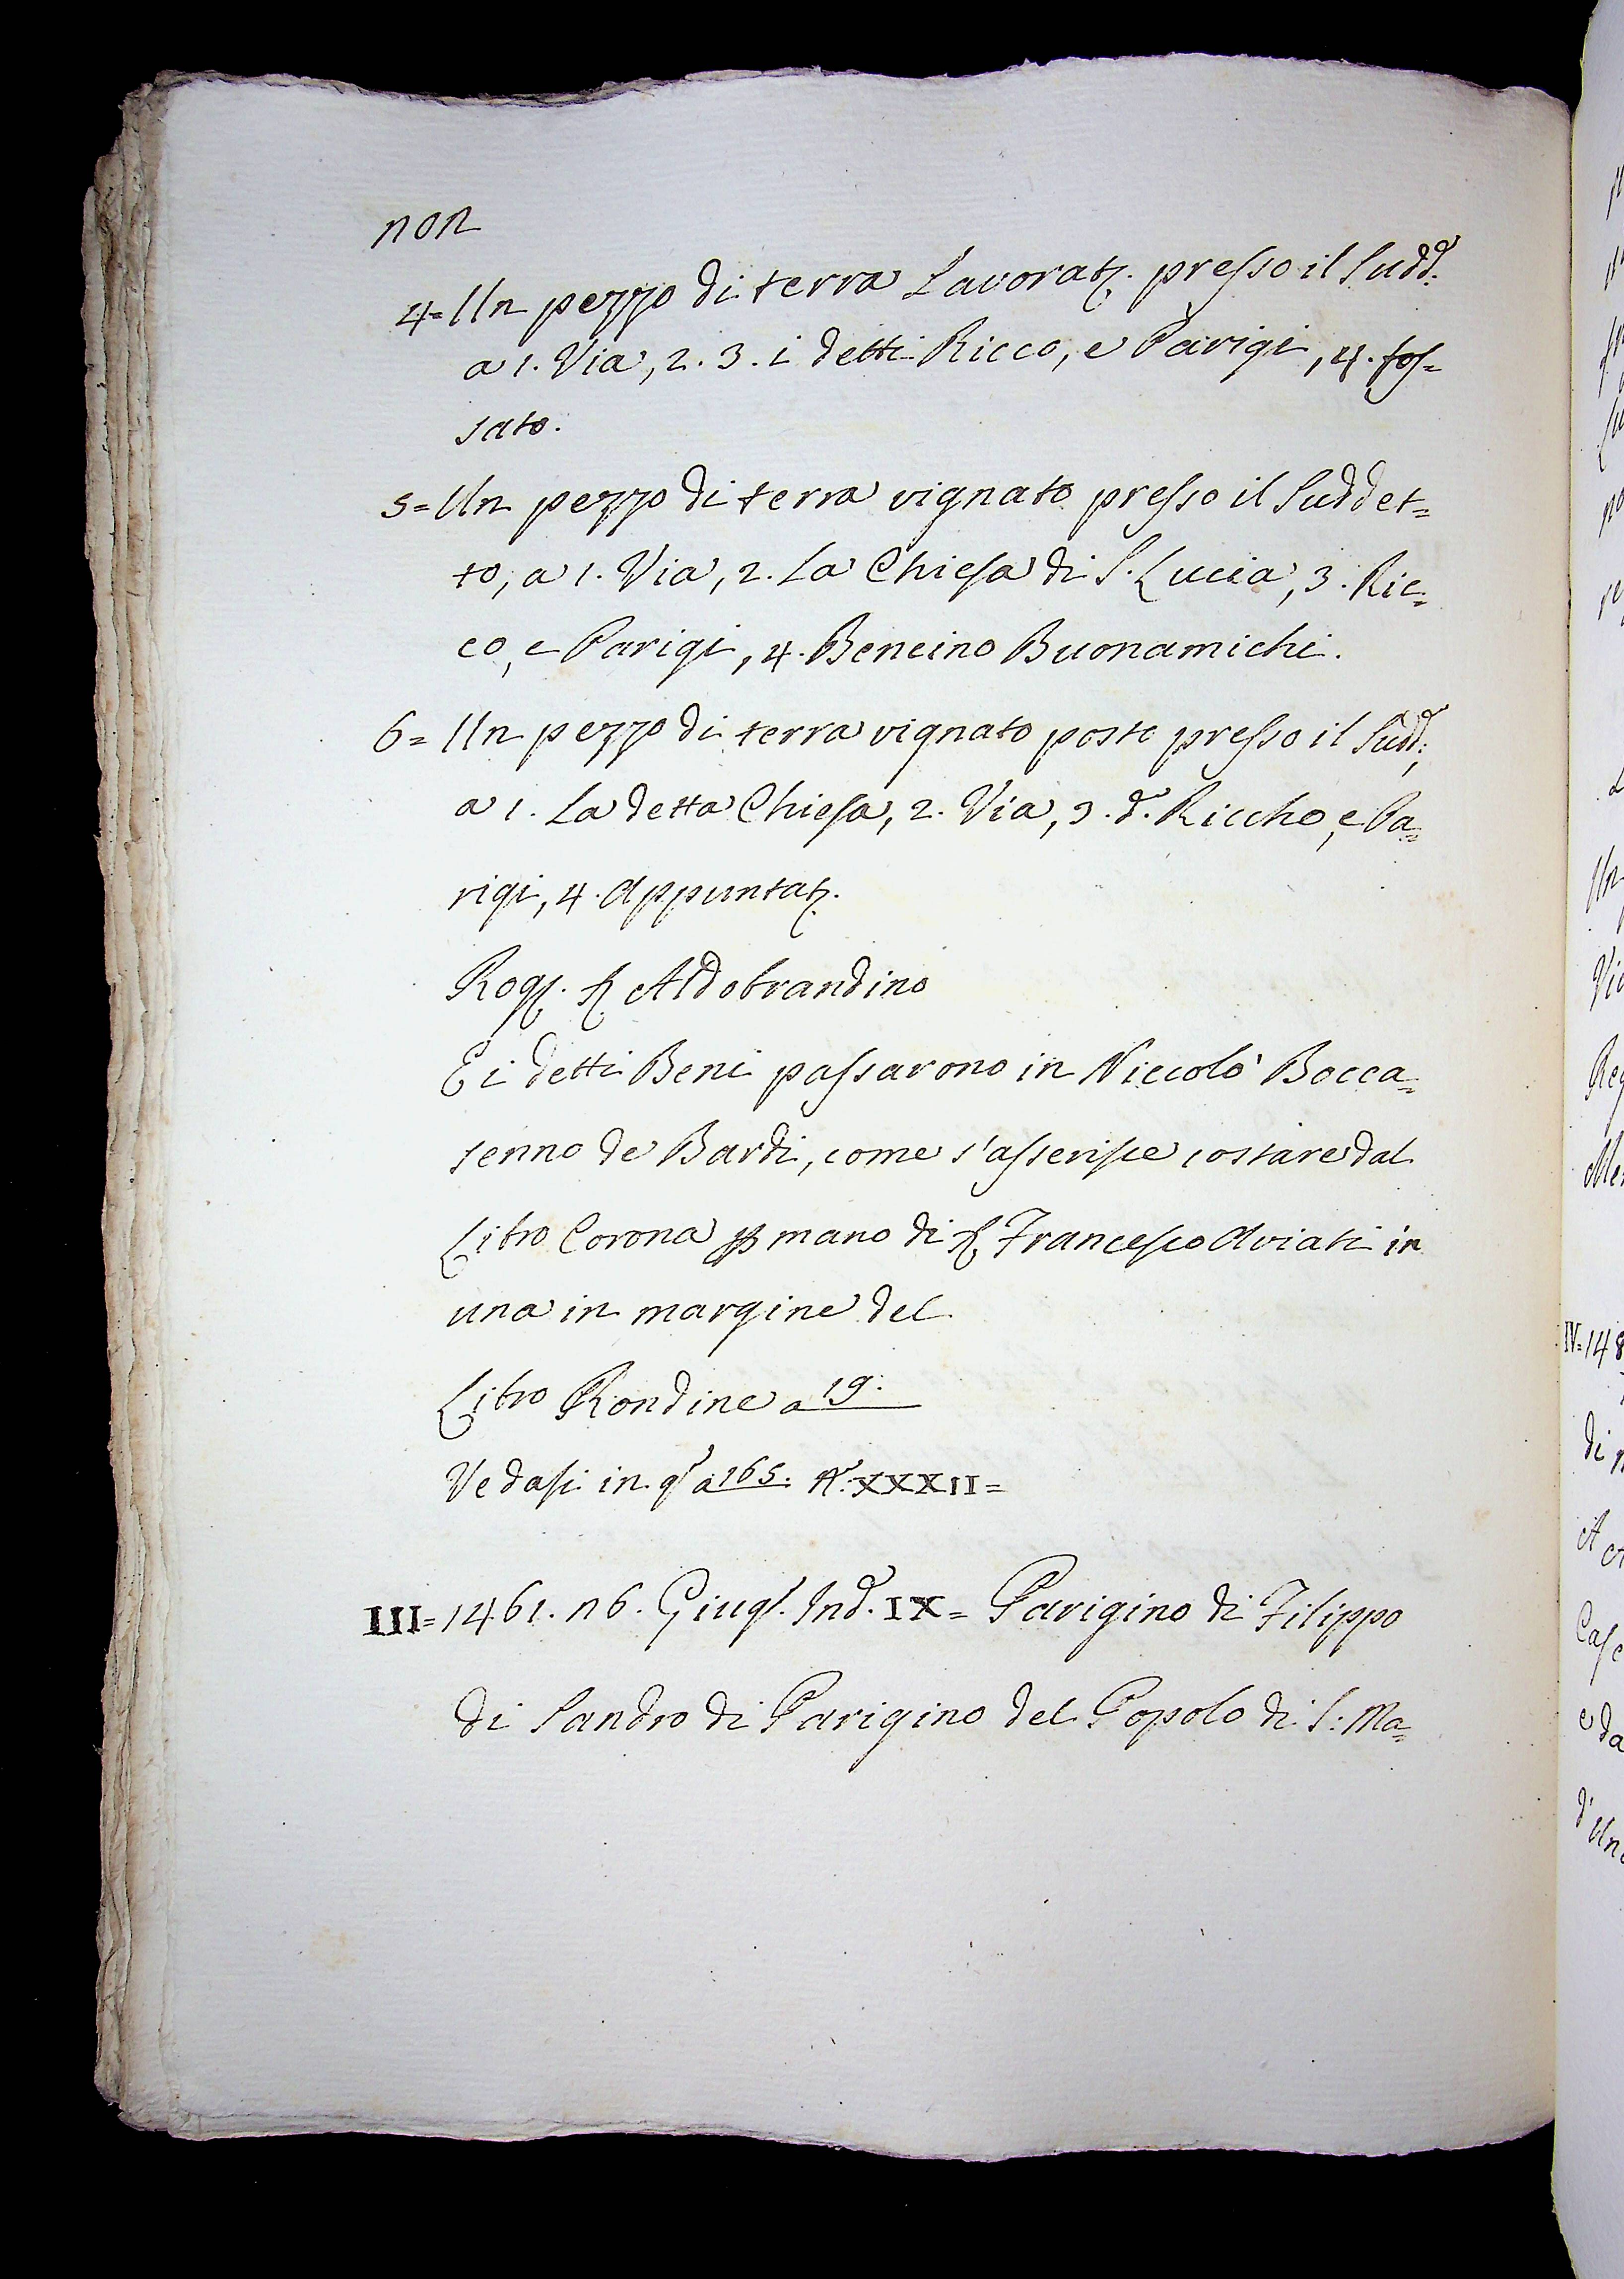 non
4= Un pezzo di terra Lavorat. presso il Sudd.º
a 1. Via, 2. 3. i detti Ricco, e Parigi, 4. fos=
sato.
5= Un pezzo di terra vignato presso il Suddet=
to, a 1. Via, 2. La Chiesa di S. Lucia, 3. Ric=
co, e Parigi, 4. Bencino Buonamichi.
6= Un pezzo di terra vignato posto presso il Sudd.º,
a 1. La detta Chiesa, 2. Via, 3. d.º Riccho, e Pa=
rigi, 4. Appuntat.
Rog. Aldobrandino
E i detti Beni passarono in Niccolò Bocca=
senno de Bardi, come s'asserisce costare dal
Libro Corona mano di Francesco Aviati in
una in margine del
Libro Rondine a 19.
Vedasi in q.º a 165. Nº. XXXII=
III= 1461. 16. Giug. Ind. IX= Parigino di Filippo
di Sandro di Parigino del Popolo di S: Ma=
IV= 148